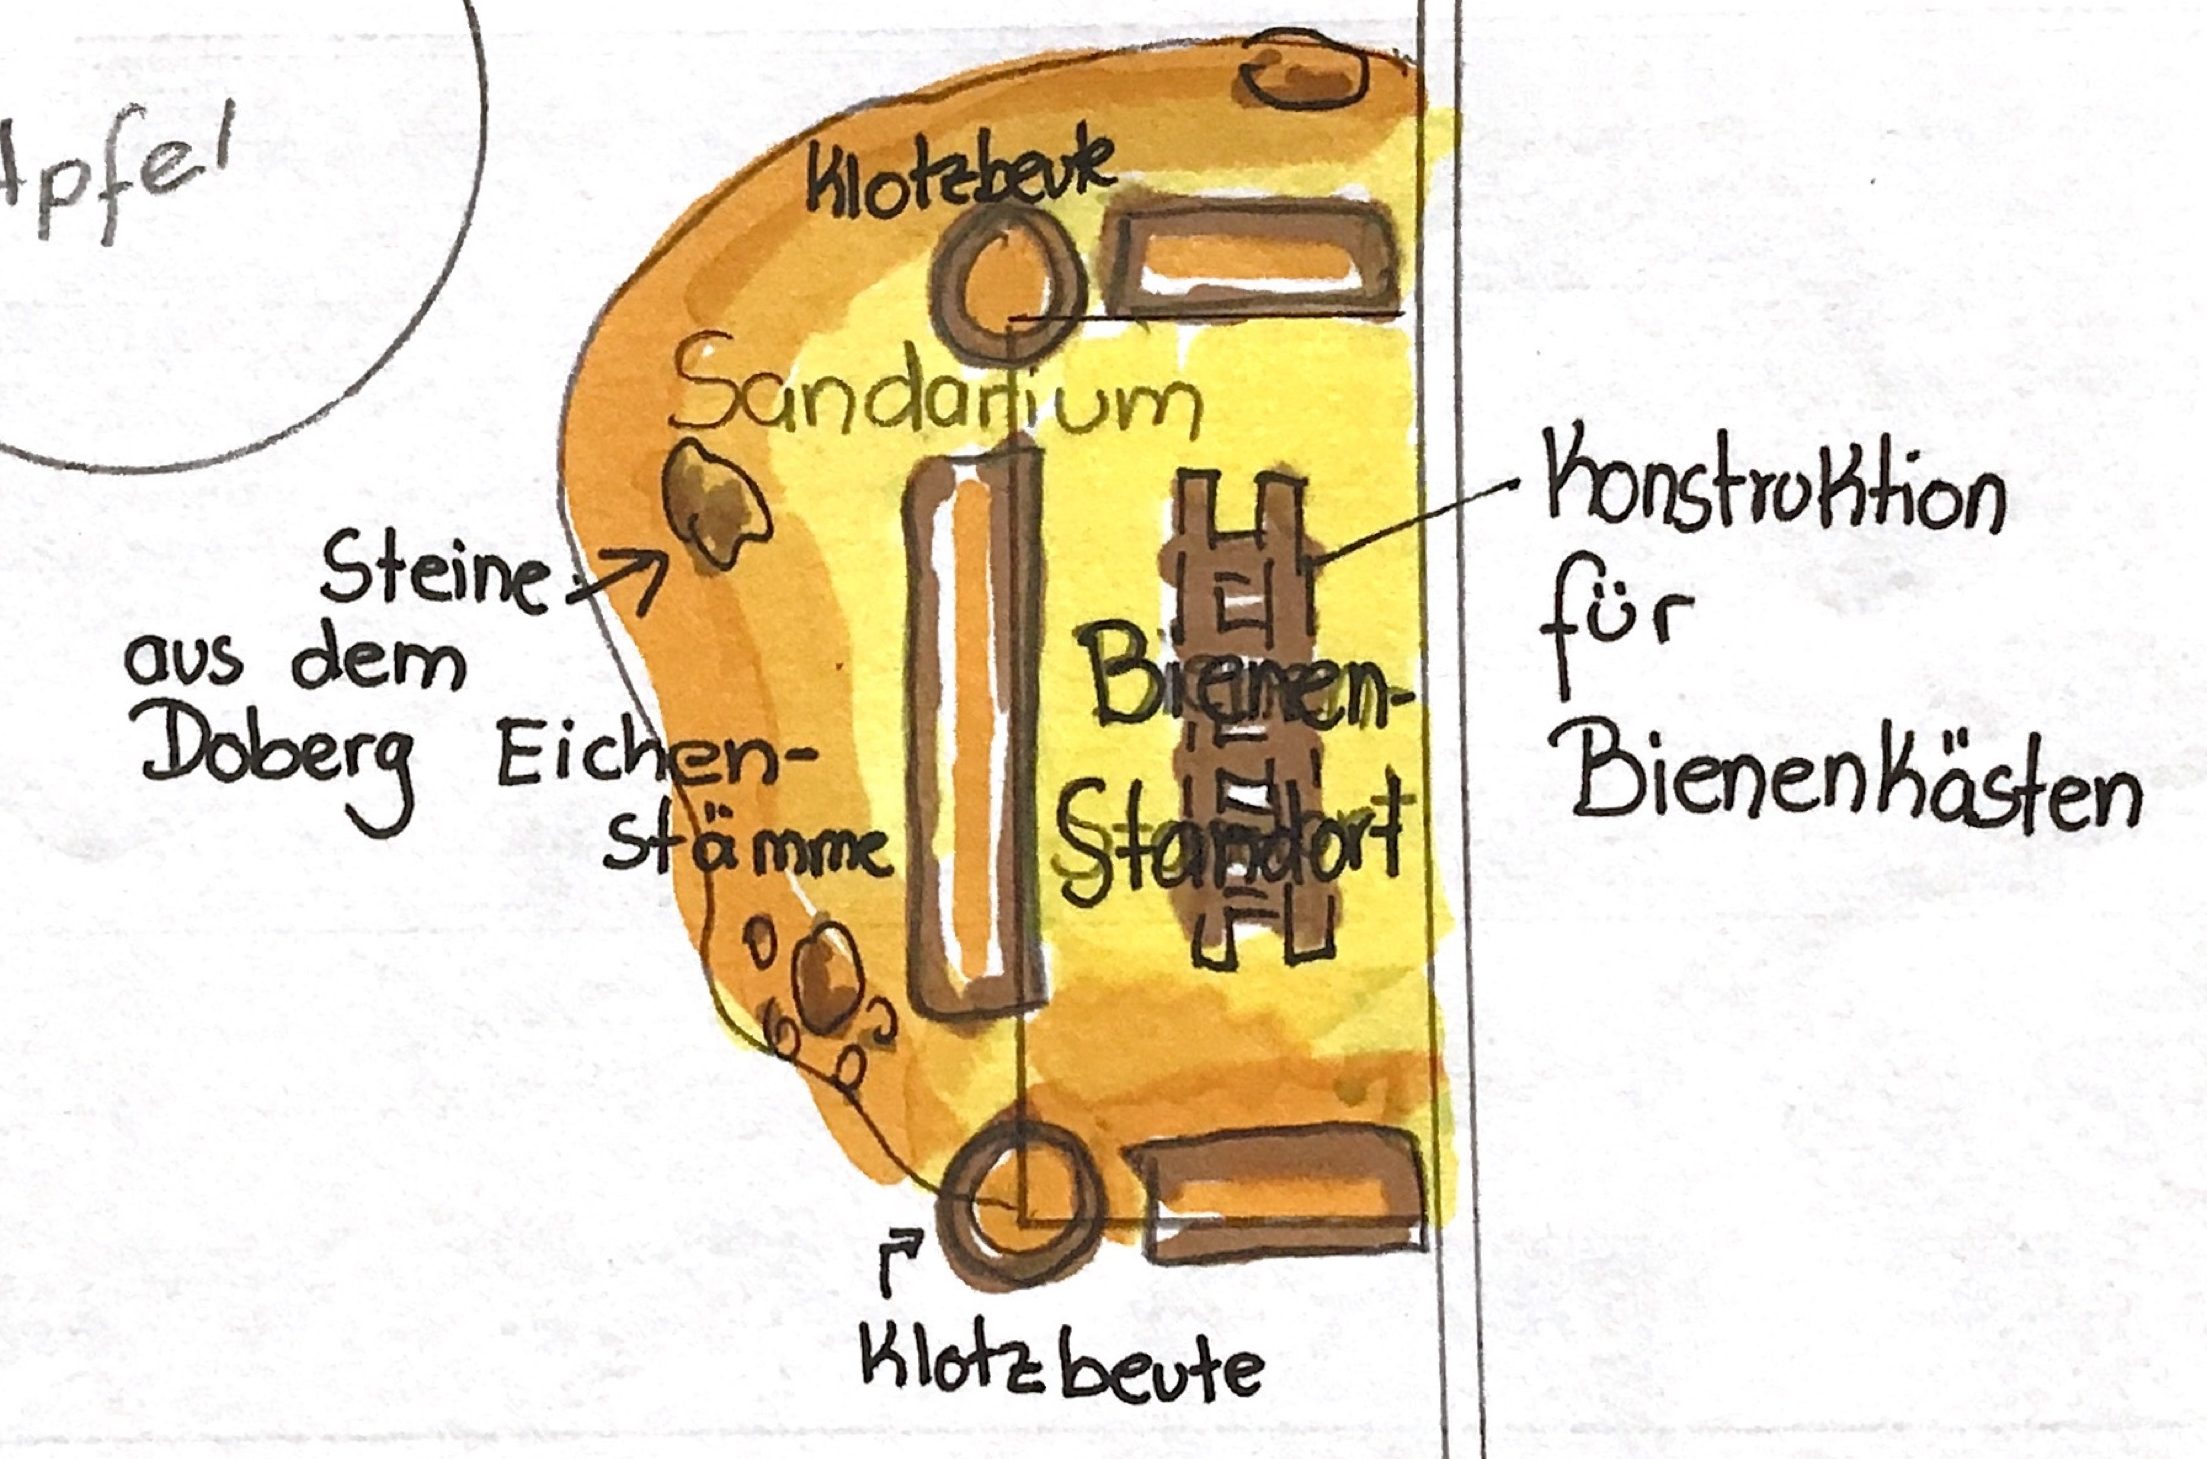 Apfel
Klotzbeute
Sandarium
Steine
aus dem
Doberg
Eichen-
stämme
Bienen-
Standort
Konstruktion
für
Bienenkästen
Klotzbeute